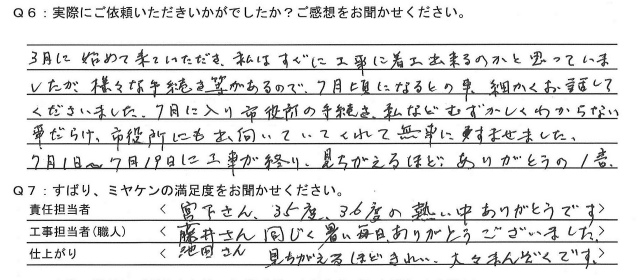 Q６：実際にご依頼いただきいかがでしたか？ご感想をお聞かせください。
3月に始めて来ていただき、私はすぐに工事に着工出来るのかと思っていま
したが、様々な手続き等があるので、7月頃になるとの事、細かくお話して
くださいました。7月に入り市役所の手続き、私などむずかしくわからない
事だらけ、市役所にも出向いていてくれて無事にすませました。
7月1日〜7月19日に工事が終り、見ちがえるほど、ありがとうの1言、
Q７：ずばり、ミヤケンの満足度をお聞かせください。
責任担当者 〈 宮下さん、35度、36度の熱い中ありがとうです〉
工事担当者（職人） 〈 藤井さん 同じく暑い毎日、ありがとうございました〉
池田さん
仕上がり 〈 見ちがえるほどきれい、大々まんぞくです。〉